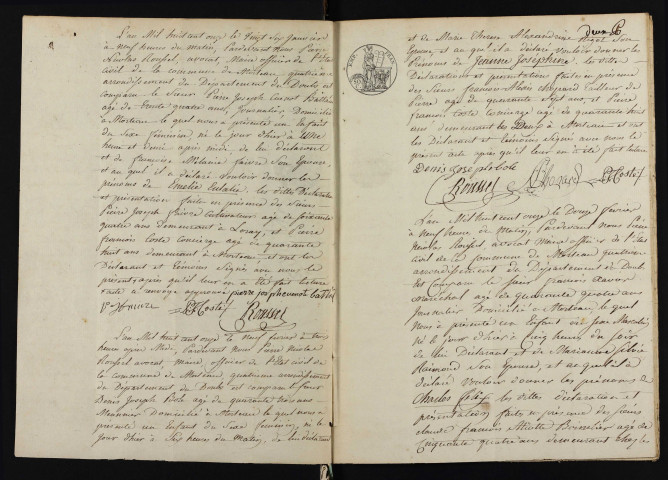 L'an Mil huit cent onze le vingt six Janvier
à neuf heures du matin, Pardevant Nous Pierre
Nicolas Roussel, avocat, Maire officier de l'Etat
civil de la commune de Morteau quatrième
arrondissement du Département du Doubs est
comparu le Sieur Pierre Joseph Cuenot
agé de trente quatre ans Journalier, Domicilié
à Morteau lequel nous a présenté un Enfant
du Sexe féminin, né le jour d'hier à une
heure et demie après midi de lui déclarant
et de françoise Mélanie faivre son Epouse
et auquel il a déclaré vouloir donner les
prénoms de Eulalie, les dittes Déclaration
et présentation faite en présence des Sieurs
Pierre Joseph faivre cultivateur agé de soixante
quatre ans demeurant à Loray, et Pierre
françois Coste Concierge agé de quarante
huit ans demeurant à Morteau, et ont les
Déclarant et Témoins Signés avec nous le
présent, après qu'il leur en a été fait lecture
pierre joseph cuenot
P J faivre PF Coste
Roussel
L'an Mil huit cent onze le neuf février à trois
heures après Midi, Pardevant Nous Pierre Nicolas
Roussel avocat, maire, officier de l'Etat civil de
la commune de Morteau, quatrième arrondissement
du Département du Doubs est comparu le sieur
Denis Joseph Bole agé de quarante trois ans
Meunier Domicilié à Morteau lequel nous a
présenté un enfant du Sexe féminin, né le
Jour d'hier à Six heures du Matin, de lui déclarant
et de Marie Therese Alexandrine son
Epouse et auquel il a déclaré vouloir donner les
Prénoms de Jeanne Josephine, les dittes
Déclaration et présentation faite en présence
des Sieurs françois Tailleur de
Pierre agé de quarante Sept ans, et Pierre
françois Coste Concierge agé de quarante huit
ans demeurant les Deux à Morteau, et ont
les Déclarant et témoins Signés avec nous le
présent acte après qu'il leur en a été fait lecture
Denis Joseph bole
Roussel PF Coste
L'an Mil huit cent onze le Douze février
à neuf heures du Matin, Pardevant Nous Pierre
Nicolas Roussel, avocat Maire officier de l'Etat
civil de la Commune de Morteau quatrième
arrondissement du Département du Doubs
est Comparu le Sieur françois Xavier
Maréchal agé de quarante quatre ans
Journalier Domicilié à Morteau, lequel
Nous a présenté un Enfant du Sexe Masculin,
né le jour d'hier à Cinq heures du Soir
de lui Déclarant et de Marianne
Raimond son Epouse, et auquel il a
déclaré vouloir donner les prénoms de
Charles les dittes déclaration et
présentation faite en présence des Sieurs
claude françois agé de
Cinquante quatre ans demeurant